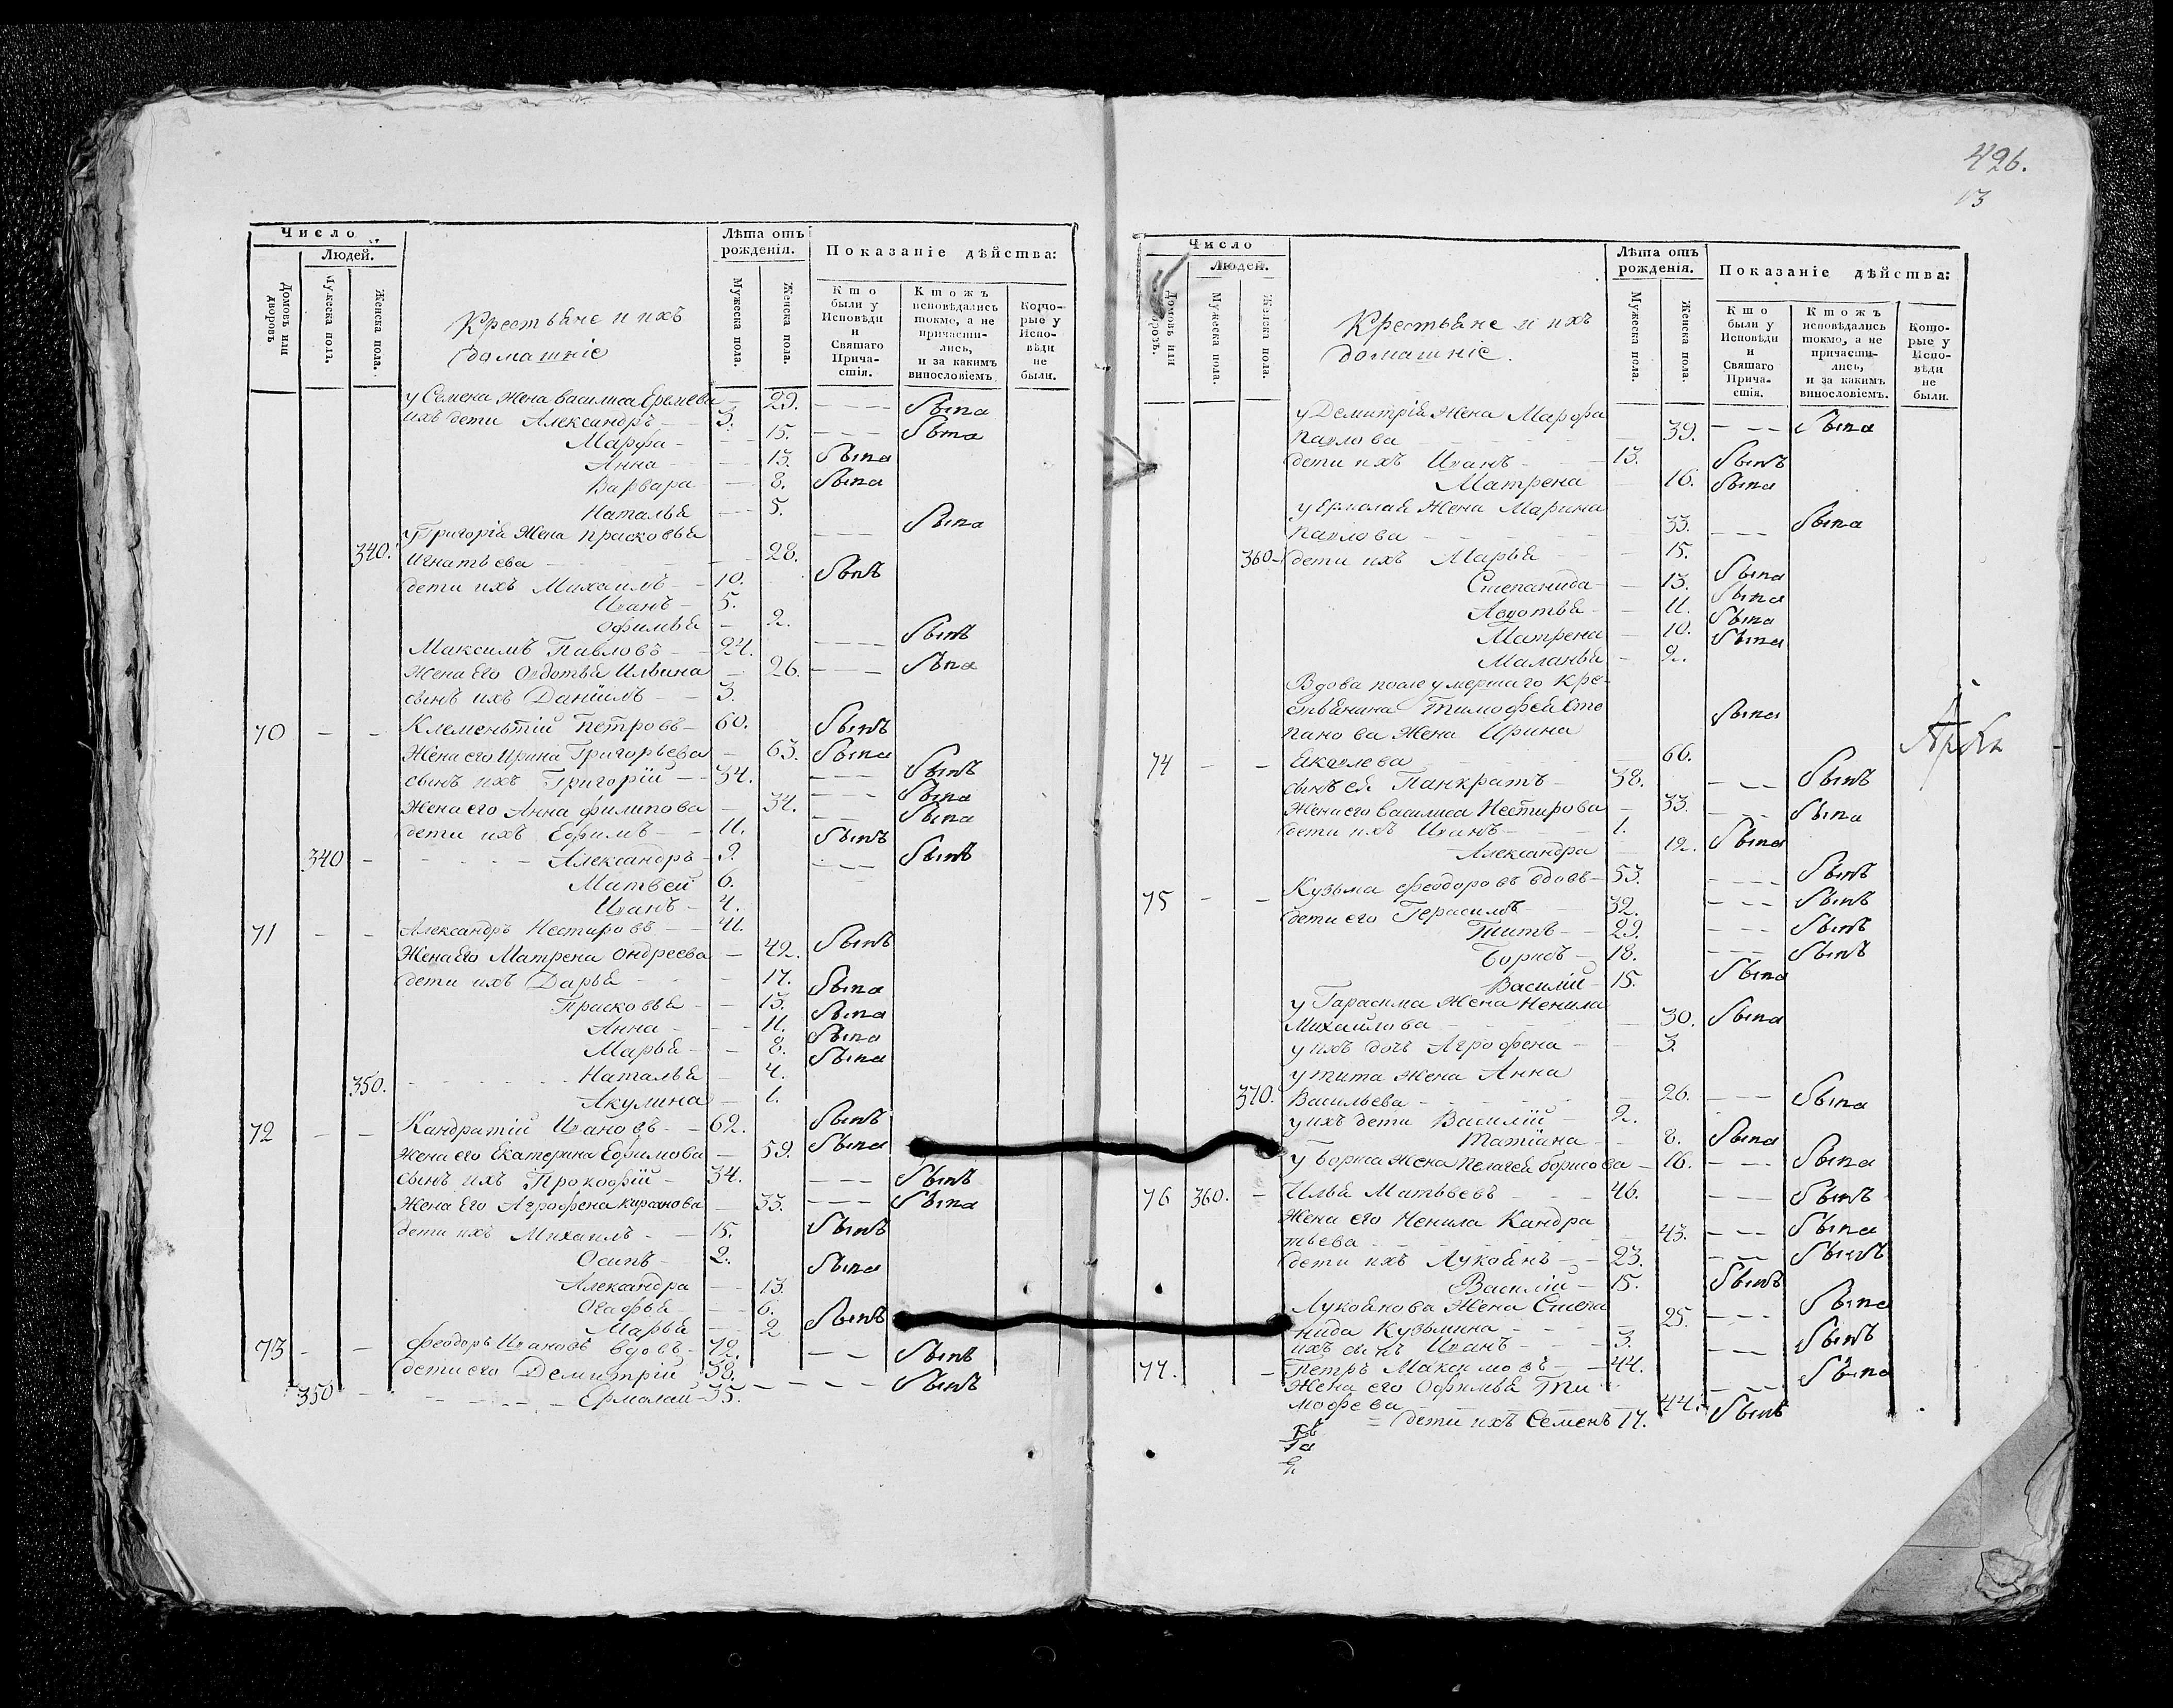 Число
Людей.
Домовъ или дворовъ
Мужеска полл.
Женска пола.
Крестьяне и ихъ
домашніе
Лѣта отъ
рожденія.
Мужеска пола.
Женска пола.
Показаніе дѣйства:
Кто
были у
Исповѣди
и
Святаго
Прича-
стія.
Ктожъ
исповѣдались
токмо, а не
причасти-
лись,
и за какимъ
винословіемъ
Кото-
рые у
Испо-
вѣди
не
были.
у Семена жена василиса Еремева 29. была
ихъ дети Александръ 3.
Марфа 15. была
Анна 13. была
Варвара 8. была
Наталья 5.
у Григорія жена прасковья была
340. Игнатьева 28.
дети ихъ Михаилъ 10. былъ
Иванъ 5.
Офимья 2.
Максимъ Павловъ 24. былъ
жена его Овдотья Ильина 26. была
сынъ ихъ Даніилъ 3.
70 Клеменьтій Петровъ 60. былъ
Жена его Ирина Григорьева 63. была
сынъ ихъ Григорій 34. былъ
жена его Анна филипова 34. была
дети ихъ Ефимъ 11. былъ
340 Александръ 9. былъ
Матвей 6.
Иванъ 4.
71 Александръ Нестировъ 41. былъ
Жена Его Матрена Ондреева 42.
дети ихъ Дарья 17. была
Прасковья 13. была
Анна 11. была
Марья 8. была
350. Наталья 4.
Акулина 1.
72 Кандратій Ивановъ 62. былъ
жена его Екатерина Ефимова 59. была
сынъ ихъ Прокофій 34. былъ
жена Его Агрофена кирсанова 33. была
дети ихъ Михаилъ 15. былъ
Осипъ 2.
Александра 13. была
Огафья 6.
Марья 2
73 Феодоръ Ивановъ вдовъ 72. былъ
дети его Демитрій 38. былъ
350 Ермолай 35. былъ
496.
13
Число
Людей.
Домовъ или
Мужеска пола.
Женска пола.
Крестьяне и ихъ
домашніе.
Лѣта отъ
рожденія.
Мужеска пола.
Женска пола.
Показаніе дѣйства:
Кто
были у
Исповѣди
и
Святаго
Прича-
стія.
Ктожъ
исповѣдались
токмо, а не
причасти-
лись,
и за какимъ
винословіемъ.
Кото-
рые у
Испо-
вѣди
не
были.
у Демитрія жена Марфа
павлова 39. была
дети ихъ Иванъ 13. былъ
Матрена 16. была
у Ермолая жена Марина
павлова 33. была
360 дети ихъ Марья 15. была
Степанида 13. была
Авдотья 11. была
Матрена 10. была
Маланья 2.
Вдова после умершаго кре-
стьянина Тимофея Сте
панова жена Ирина была
74 Яковлева 66.
сынъ ея Панкратъ 38. былъ
жена его василиса Нестирова 33. была
дети ихъ Иванъ 1.
Александра 12. была
75 Кузьма Феодоровъ вдовъ 53. былъ
дети его Герасимъ 32. былъ
Титъ 29. былъ
Борисъ 18. былъ
Василій 15. была
у Гарасима жена Ненила
Михайлова 30. была
у ихъ дочь Агрофена 3.
у тита жена Анна
370. Васильева 26. была
у ихъ дети Василій 2.
Татіана 8. была
у бориса жена пелагея борисова 16. была
76 360. Илья Матьвеевъ 46. былъ
Жена его Ненила Кандра
тьева 43. была
дети ихъ Лукоянъ 23. былъ
Василій 15. былъ
Лукоянова жена Степа
нида Кузьмина 25. была
ихъ сынъ Иванъ 3.
77. Петръ Максимовъ 44. былъ
Жена его Офимья Ти
мофева 44. была
дети ихъ Семенъ 17. былъ